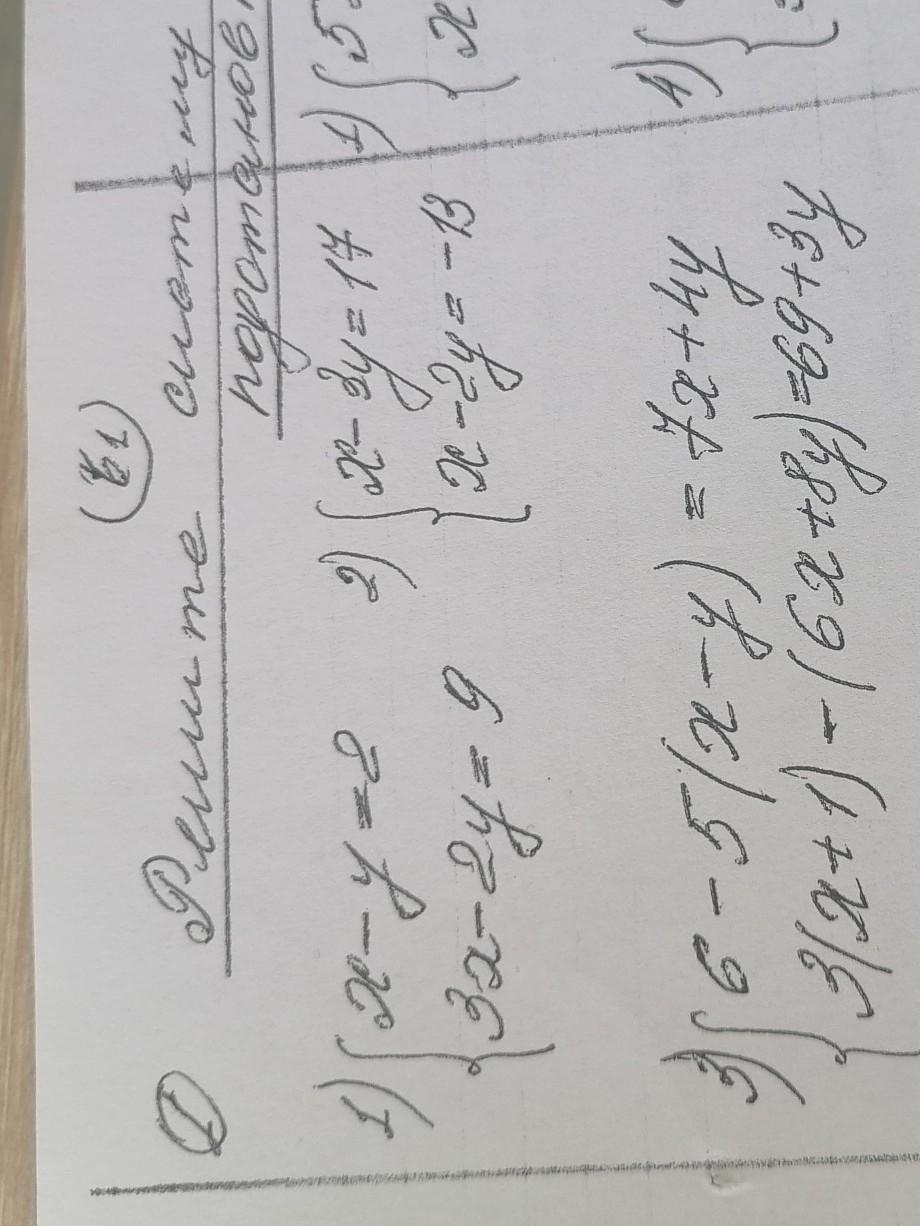 (В1)
① Решите систему
подстановк
1) { x - y = 2
3x - 2y = 9
2) { x - 3y = 17
x - 2y = -13
1) { 5
x
3) { 6 - 5(x - y) = 7x + 4y
3(x + 1) - (6x + 8y) = 69 + 3y
4) {